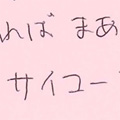 れば まあ
サイコー